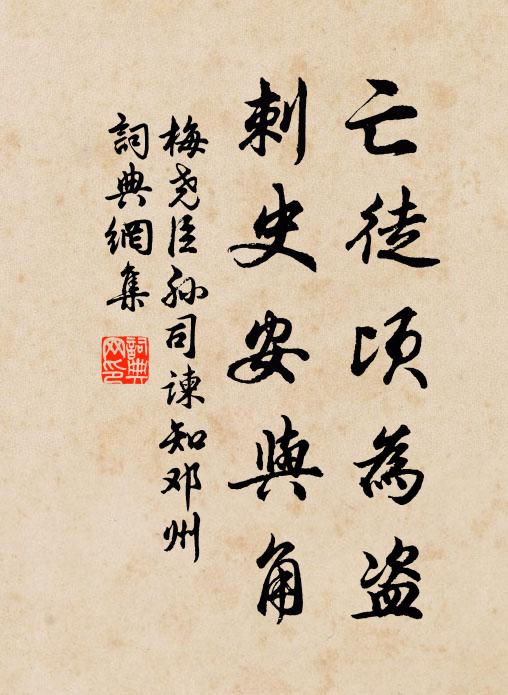 亡徒頃為盗
刺史安與角
梅尧臣孙司谏知邓州
詞典網集
詞典网印